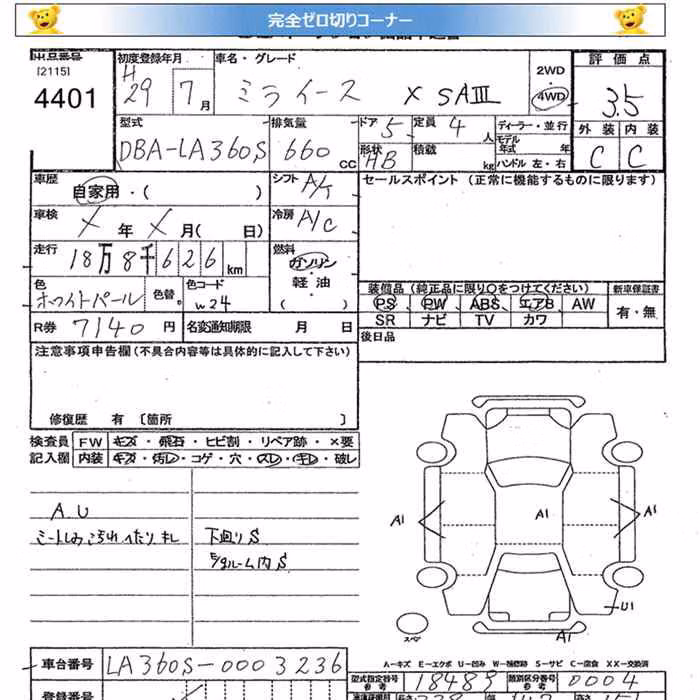 完全ゼロ切りコーナー
出品番号 初度登録年月 車名・グレード 2WD 評価点
[2115] H
4401 29 7月 ミライース X SAⅢ 4WD 3.5
型式 排気量 ドア 5 定員 4人 ディーラー・並行 外装 内装
DBA-LA360S 660cc 形状 HB 積載 kg モデル年式 年 C C
ハンドル 左・右
車歴 自家用・( ) シフト A/ セールスポイント (正常に機能するものに限ります)
車検 X年 X月( 日) 冷房 A/C
走行 18万8千626km 燃料 ガソリン・軽油・( )
色 ホワイトパール 色替。 色コード W24 装備品 (純正品に限り○をつけてください) 新車保証書
PS PW ABS エアB AW 有・無
SR ナビ TV カワ
R券 7140円 名変通知期限 月 日 後日品
注意事項申告欄(不具合内容等は具体的に記入して下さい)
修復歴 有 〔箇所 〕
検査員 FW キズ・飛石・ヒビ割・リペア跡・×要
記入欄 内装 キズ・汚レ・コゲ・穴・スレ・キレ・破レ
A.U
下廻りS
E/gルーム内S
A1 A1 A1
U1
スペア A1
A-キズ E-エクボ U-凹み W-補修跡 S-サビ C-腐食 XX-交換済
車台番号 LA360S-0003236 型式指定番号 参考 18489 類別区分番号 参考 0004
登録番号